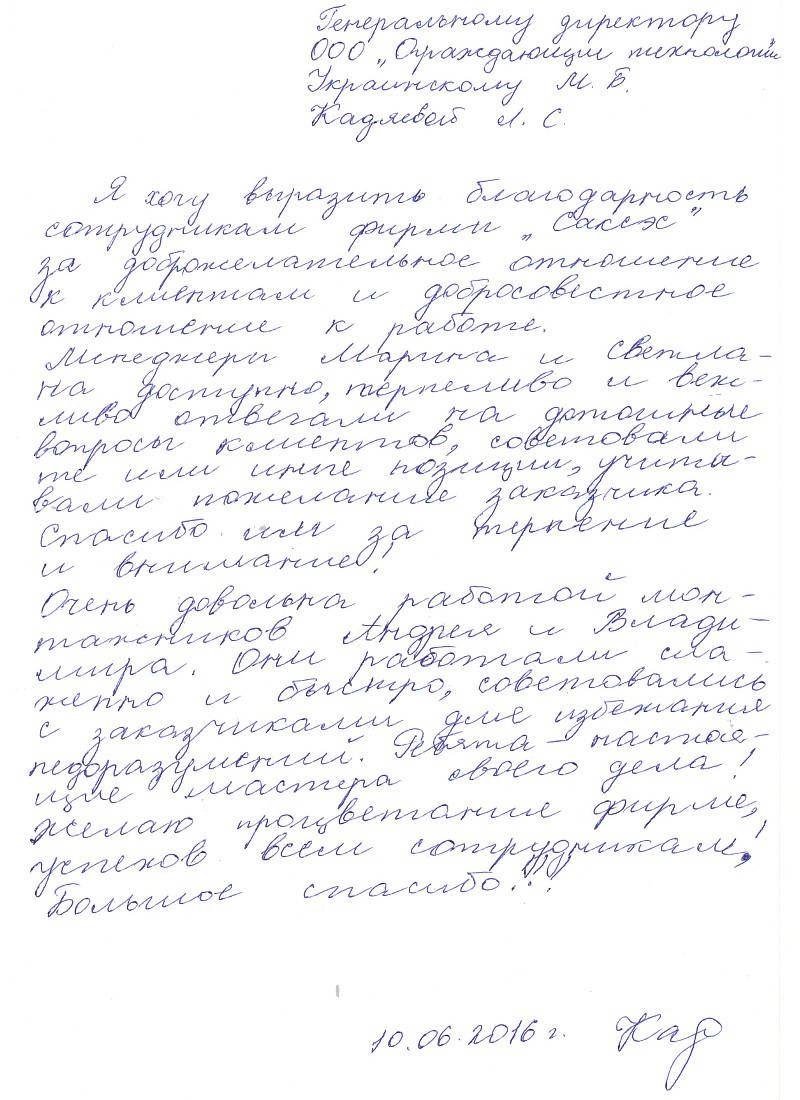 Генеральному директору
ООО „Ограждающие технологии"
Украинскому М. Б.
Кадяевой Л. С.
Я хочу выразить благодарность
сотрудникам фирмы „Саксэс"
за доброжелательное отношение
к клиентам и добросовестное
отношение к работе.
Менеджеры Марина и Светла-
на доступно, терпеливо и веж-
ливо отвечали на дотошные
вопросы клиентов, советовали
те или иные позиции, учиты-
вали пожелание заказчика.
Спасибо им за терпение
и внимание!
Очень довольна работой мон-
тажников Андрея и Влади-
мира. Они работали сла-
женно и быстро, советовались
с заказчиками для избежания
недоразумений. Ребята – настоя-
щие мастера своего дела!
Желаю процветание фирме,
успехов всем сотрудникам!
Большое спасибо!!!
10.06.2016 г. Кад